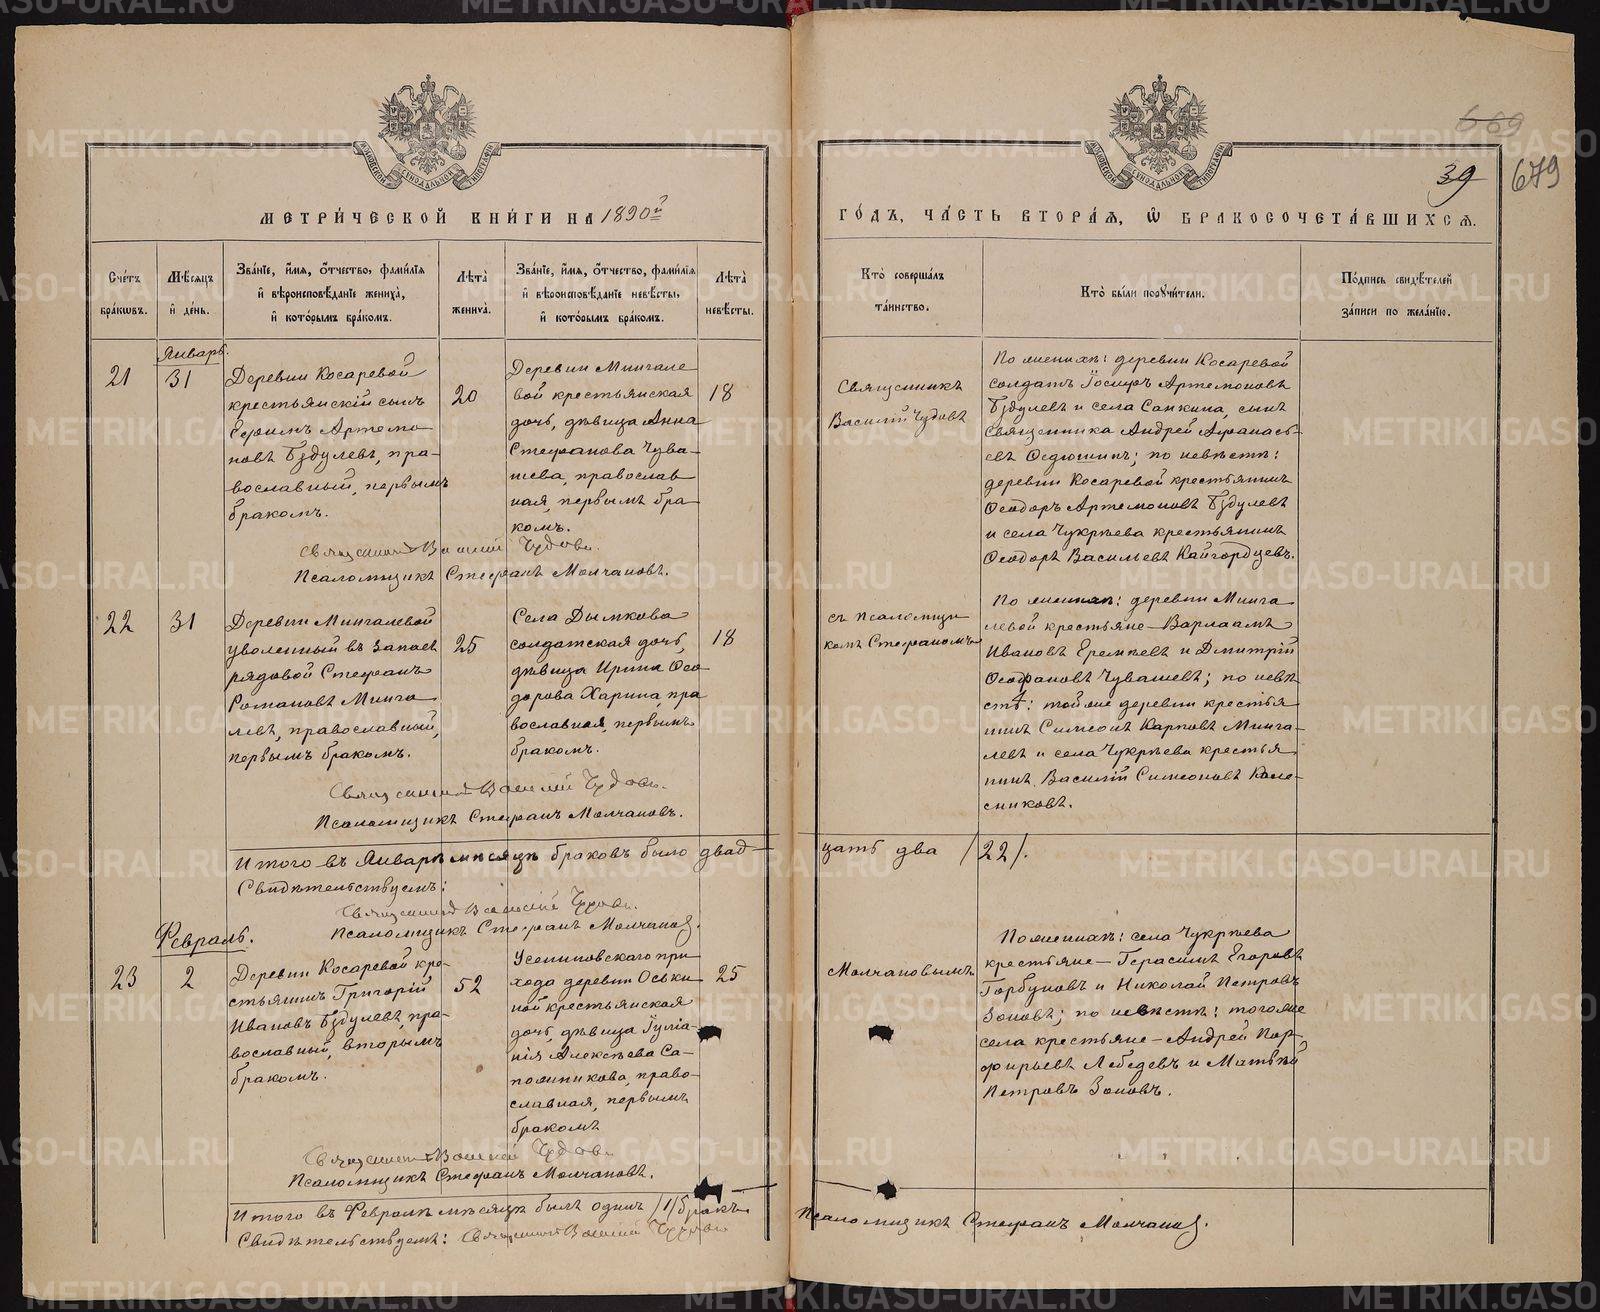 МЕТРИ́ЧЕСКОЙ КНИ́ГИ НА 1890й
Сче́тъ бра́кωвъ.
Мѣ́сяцъ и҆ де́нь.
Зва́нїе, и҆́мя, ѻ҆́тчество, фами́лїя и҆ вѣроисповѣ́данїе жениха̀, и҆ кото́рымъ бра́комъ.
Лѣта̀ жениха̀.
Зва́нїе, и҆́мя, ѻ҆́тчество, фами́лїя и҆ вѣроисповѣ́данїе невѣ́сты, и҆ кото́рымъ бра́комъ.
Лѣта̀ невѣ́сты.
Январь.
21
31
Деревни Косаревой
крестьянскій сынъ
Ефимъ Артемо-
новъ Бздулевъ, пра-
вославный, первымъ
бракомъ.
20
Деревни Мингале
вой крестьянская
дочь, дѣвица Анна
Стефанова Чува-
шева, православ
ная, первымъ бра-
комъ.
18
Священникъ Василій Чудовъ.
Псаломщикъ Стефанъ Молчановъ.
22
31
Деревни Мингалевой
уволенный въ запасъ
рядовой Стефанъ
Романовъ Минга-
левъ, православный,
первымъ бракомъ.
25
Села Дымкова
солдатская дочь,
дѣвица Ирина Ѳео-
дорова Харина, пра
вославная, первымъ
бракомъ.
18
Священникъ Василій Чудовъ.
Псаломщикъ Стефанъ Молчановъ.
Итого въ Январѣ мѣсяцѣ браковъ было двад-
Свидѣтельствуемъ:
Священникъ Василій Чудовъ.
Псаломщикъ Стефанъ Молчановъ.
Февраль.
23
2
Деревни Косаревой кре-
стьянинъ Григорій
Ивановъ Бздулевъ, пра-
вославный, вторымъ
бракомъ.
52
Усениновскаго при
хода деревни Оськи
ной крестьянская
дочь, дѣвица Іуліа-
нія Алексѣева Са-
пожникова, право-
славная, первымъ
бракомъ
25
Священникъ Василій Чудовъ.
Псаломщикъ Стефанъ Молчановъ.
Итого въ Февралѣ мѣсяцѣ былъ одинъ /1/ бракъ.
Свидѣтельствуемъ: Священникъ Василій Чудовъ
669
39
679
ГО́ДЪ, ЧА́СТЬ ВТОРА́Я, Ѡ҆ БРАКОСОЧЕТА́ВШИХСЯ.
Кто̀ соверша́лъ та́инство.
Кто̀ бы́ли порꙋчи́тели.
По́дпись свидѣ́телей за́писи по жела́нїю.
Священникъ
Василій Чудовъ
По женихѣ: деревни Косаревой
солдатъ Іосифъ Артемоновъ
Бздулевъ и села Санкина, сынъ
священника Андрей Аѳанась-
евъ Ѳедюшинъ; по невѣстѣ:
деревни Косаревой крестьянинъ
Ѳеодоръ Артемоновъ Бздулевъ
и села Чукрѣева крестьянинъ
Ѳеодоръ Васильевъ Кайгородцевъ.
съ псаломщи
комъ Стефаномъ
По женихѣ: деревни Минга
левой крестьяне – Варлаамъ
Ивановъ Еремѣевъ и Дмитрій
Ѳеофановъ Чувашевъ; по невѣ
стѣ: той же деревни крестья
нинъ Симеонъ Карповъ Минга-
левъ и села Чукрѣева крестья
нинъ Василій Симеоновъ Коле-
сниковъ.
цать два /22/.
Молчановымъ
По женихѣ: села Чукрѣева
крестьяне – Герасимъ Егоровъ
Горбуновъ и Николай Петровъ
Зоновъ; по невѣстѣ: того же
села крестьяне – Андрей Пор-
фирьевъ Лебедевъ и Матвѣй
Петровъ Зоновъ.
Псаломщикъ Стефанъ Молчановъ.
METRIKI.GASO-URAL.RU